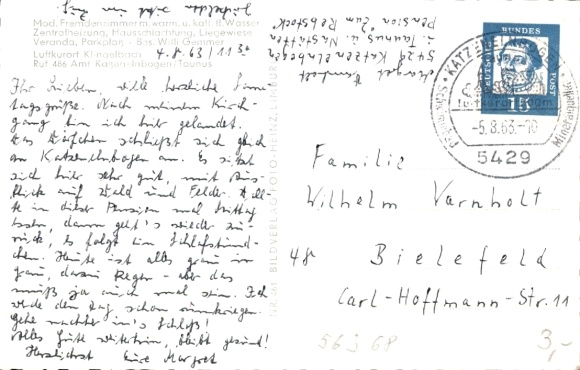 Mod. Fremdenzimmer m. warm. u. kalt. fl. Wasser
Zentralheizung, Hausschlachtung, Liegewiese
Veranda, Parkplan - Bes. Willi Gemmer
Luftkurort Klingelbach
Ruf 486 Amt Katzenelnbogen/Taunus
4.8.63/11 30
Ihr Lieben, viele herzliche Sonn-
tagsgrüße. Nach meinem Kirch-
gang bin ich hier gelandet.
Das Dörfchen schließt sich gleich
an Katzenelnbogen an. Es sitzt
sich hier sehr gut, mit Aus-
blick auf Wald und Felder. Wollte
in dieser Pension mal Mittag
essen, dann geht's wieder zu-
rück, es folgt ein Schlafstünd-
chen. Heute ist alles grau in
grau, dazu Regen - aber das
muß ja auch mal sein. Ich
werde den Tag schon rumkriegen.
Gehe nachher in's Schloß!
Alles Gute weiterhin, bleibt gesund!
Herzlichst Eure Margret
BILDVERLAG FOTO-HEINZ
5429 Katzenelnbogen
i. Taunus
Pension "Zum Rebstock"
DEUTSCHE BUNDESPOST
15
KATZENELNBOGEN
-5.8.63.-10
5429
Familie
Wilhelm Varnholt
48 Bielefeld
Carl-Hoffmann-Str. 11
56 J 68
3,-